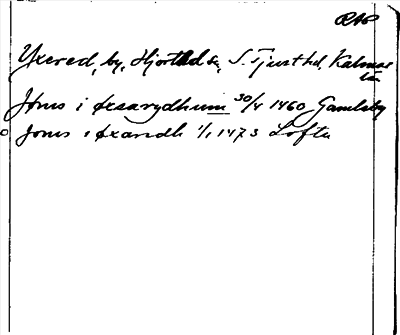 RAP
Yxered, by, Hjorted sn, S. Tjusthd, Kalmar
län
Jöns i øxsarydhum 30/4 1460 Gamleby
Jöns i øxaridh 1/1 1473 Lofta